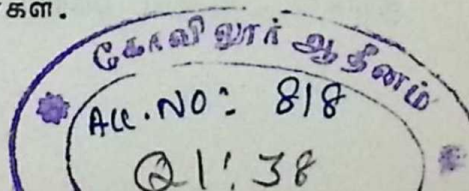 கள.
கோவிலூர் ஆதீனம்
Acc.NO: 818
Q1:38